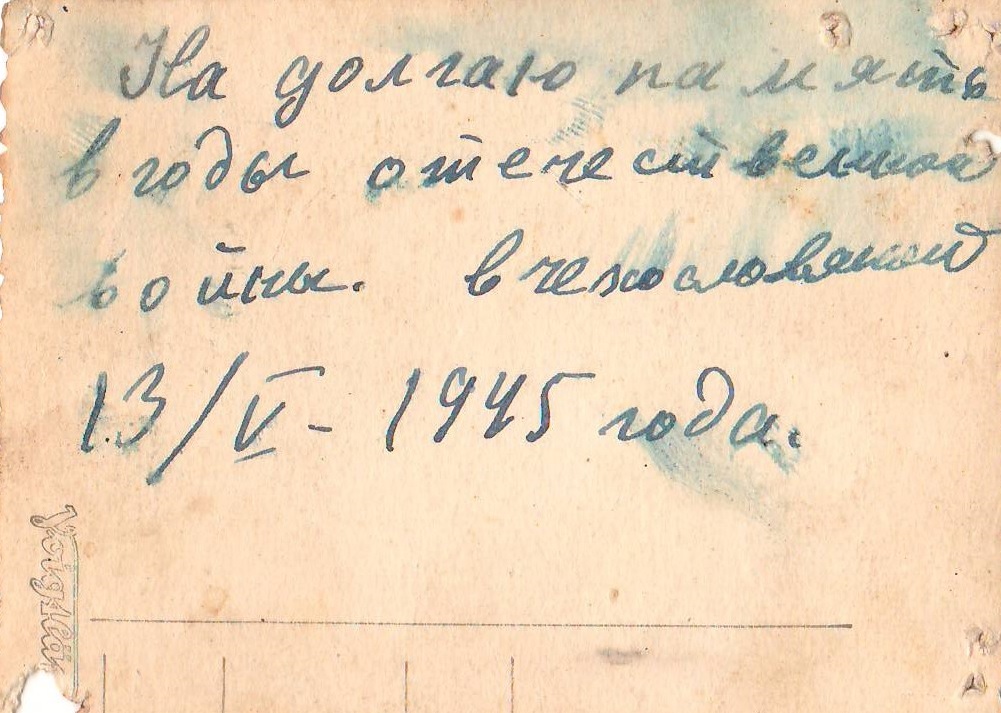 На долгаю память
в годы отечественной
войны. в чехословакии
13/V - 1945 года.
Voigtländer